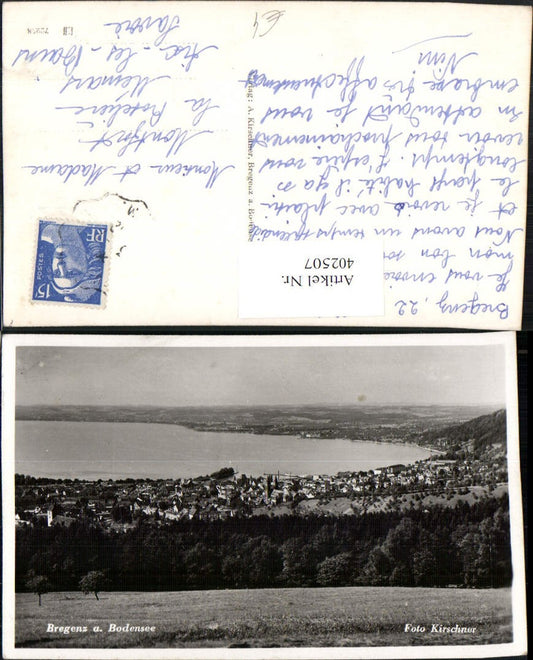 Bregenz, 22
Je vous envoie
mon bon so
Nous avons un temps splendi
et je revois avec plaisi
le pays habité il y a
longtemps. J'espère vous
revoir tous prochainement
En attendant je vous
embrasse très affectueusement
Nini
Verlag: A. Kirschner, Bregenz a. Bodensee
Monsieur et Madame
Montfort
La
Aix-les-Bains
Savoie
RF
POSTES
15F
Artikel Nr.
402507
Bregenz a. Bodensee
Foto Kirschner